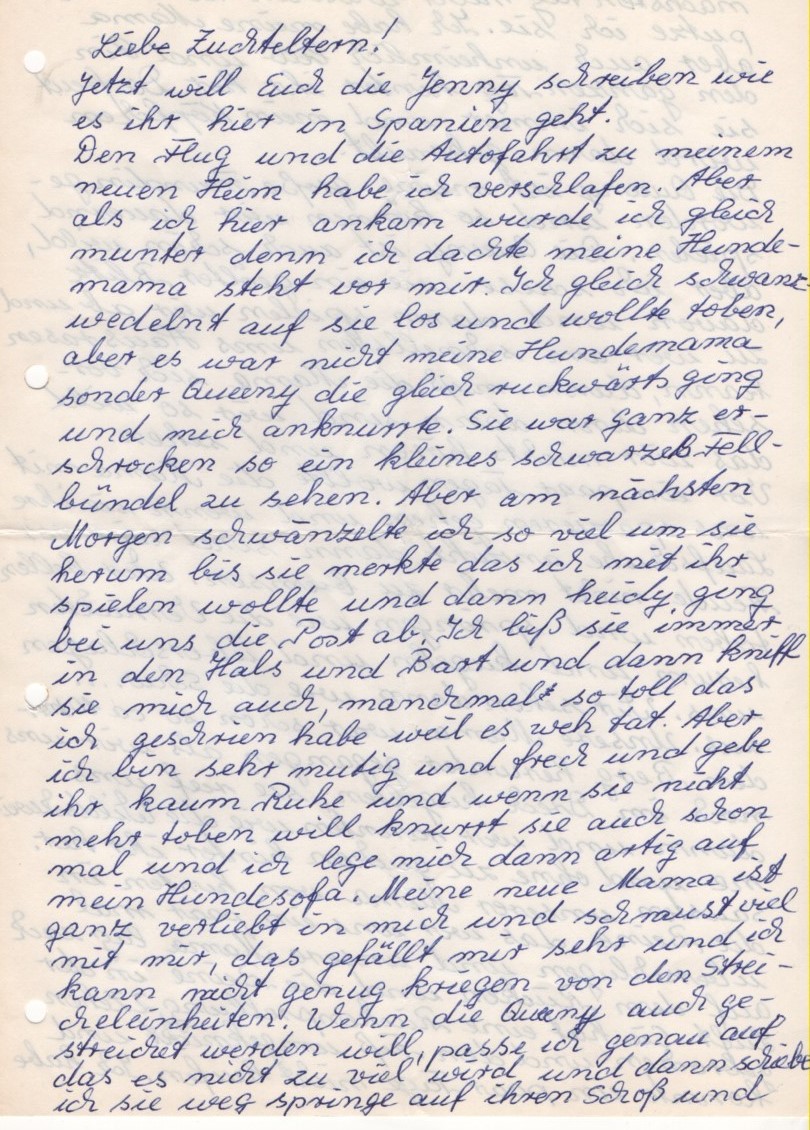 Liebe Zuchteltern!
Jetzt will Euch die Jenny schreiben wie
es ihr hier in Spanien geht.
Den Flug und die Autofahrt zu meinem
neuen Heim habe ich verschlafen. Aber
als ich hier ankam wurde ich gleich
munter denn ich dachte meine Hunde-
mama steht vor mir. Ich gleich schwanz-
wedelnt auf sie los und wollte toben,
aber es war nicht meine Hundemama
sonder Queeny die gleich ruckwärts ging
und mich anknurrte. Sie war ganz er-
schrocken so ein kleines schwarzes Fell-
bündel zu sehen. Aber am nächsten
Morgen schwänzelte ich so viel um sie
herum bis sie merkte das ich mit ihr
spielen wollte und dann heidy ging
bei uns die Post ab. Ich biß sie immer
in den Hals und Bart und dann kniff
sie mich auch, manchmal so toll das
ich geschrien habe weil es weh tat. Aber
ich bin sehr mutig und frech und gebe
ihr kaum Ruhe und wenn sie nicht
mehr toben will knurrt sie auch schon
mal und ich lege mich dann artig auf
mein Hundesofa. Meine neue Mama ist
ganz verliebt in mich und schmust viel
mit mir, das gefällt mir sehr und ich
kann nicht genug kriegen von den Strei-
cheleinheiten. Wenn die Queeny auch ge-
streichet werden will, passe ich genau auf
das es nicht zu viel wird und dann schiebe
ich sie weg springe auf ihren Schoß und